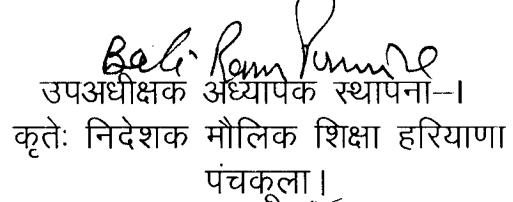 Bali Ram
उपअधीक्षक अध्यापक स्थापना–।
कृतेः निदेशक मौलिक शिक्षा हरियाणा
पंचकूला।